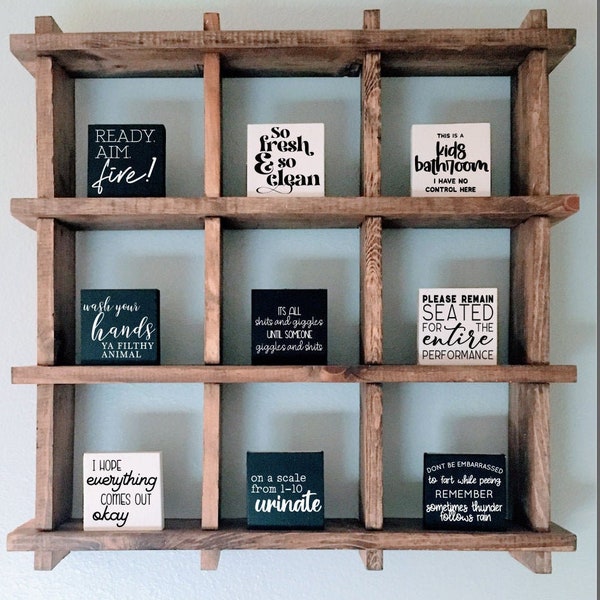 READY.
AIM.
fire!
So
fresh
& so
clean
THIS IS A
kids
bathroom
I HAVE NO
CONTROL HERE
wash your
hands
YA FILTHY
ANIMAL
ITS ALL
shits and giggles
UNTIL SOMEONE
giggles and shits
PLEASE REMAIN
SEATED
FOR THE
entire
PERFORMANCE
I HOPE
everything
COMES OUT
okay
on a scale
from 1-10
urinate
DONT BE EMBARRASSED
to fart while peeing
REMEMBER
sometimes thunder
follows rain